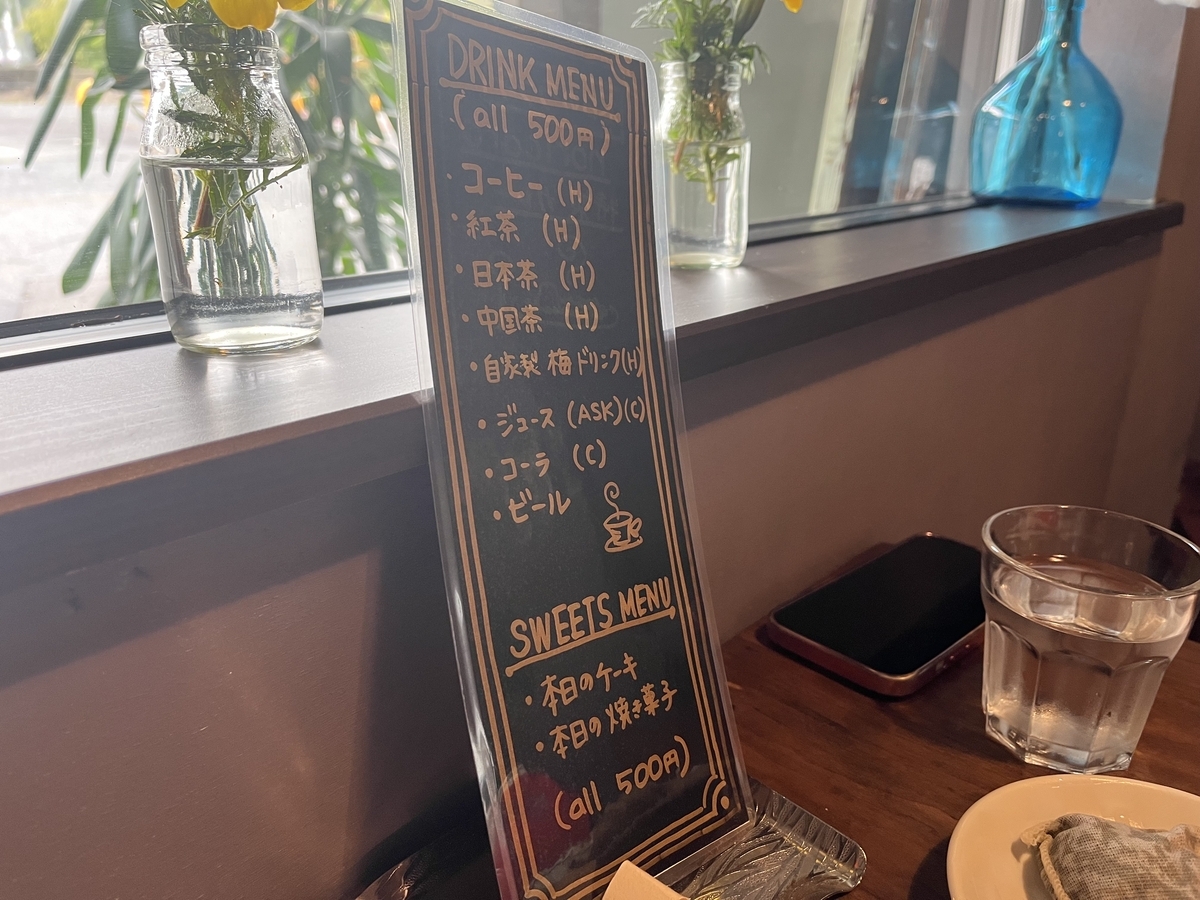 DRINK MENU
(all 500円)
・コーヒー (H)
・紅茶 (H)
・日本茶 (H)
・中国茶 (H)
・自家製 梅ドリンク(H)
・ジュース (ASK)(C)
・コーラ (C)
・ビール
SWEETS MENU
・本日のケーキ
・本日の焼き菓子
(all 500円)